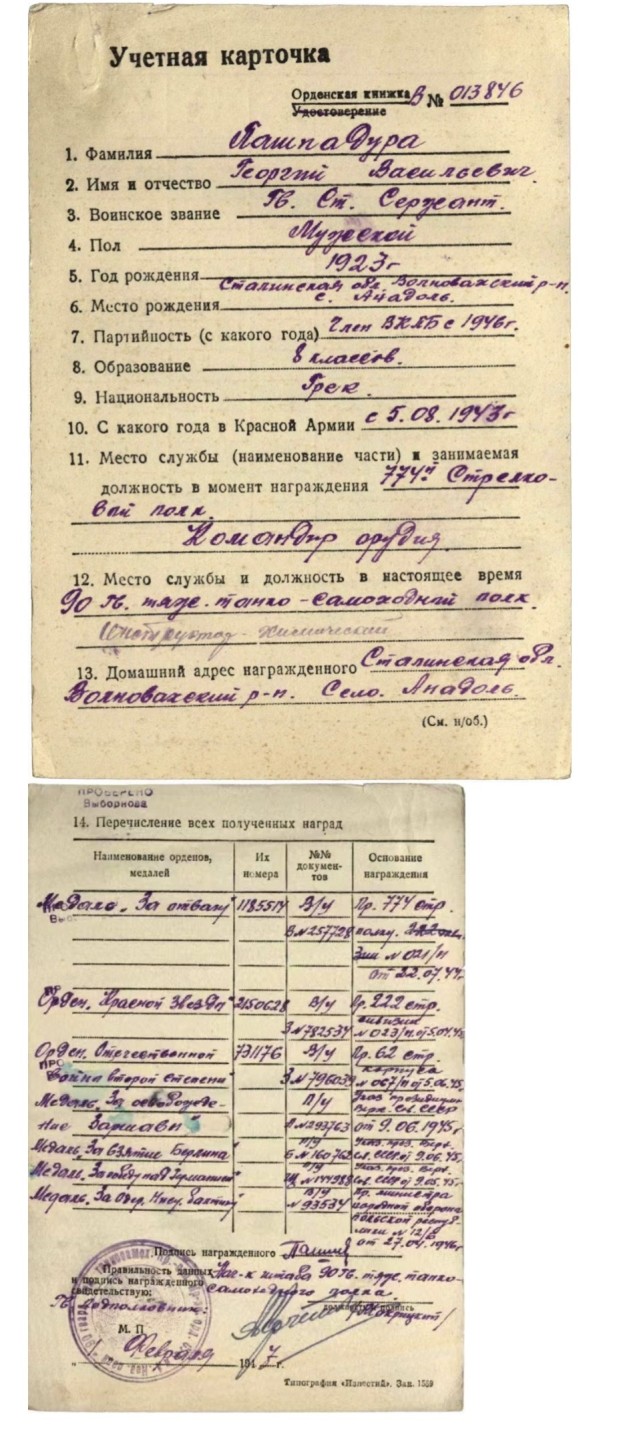 Учетная карточка
Орденская книжка В № 013846
Удостоверение
1. Фамилия Пашпадура
2. Имя и отчество Георгий Васильевич.
3. Воинское звание Гв. Ст. Сержант.
4. Пол Мужской
5. Год рождения 1923 г
Сталинская обл. Волновахский р-н.
6. Место рождения с. Анадоль.
7. Партийность (с какого года) Член ВКПБ с 1946 г.
8. Образование 8 классов.
9. Национальность Грек.
10. С какого года в Красной Армии с 5.08.1943 г
11. Место службы (наименование части) и занимаемая
должность в момент награждения 774й Стрелко-
вый полк.
Командир орудия.
12. Место службы и должность в настоящее время
90 гв. тяж. танко-самоходный полк.
Инструктор-химический
13. Домашний адрес награжденного Сталинская обл.
Волновахский р-н. Село. Анадоль.
(См. н/об.)
ПРОВЕРЕНО
Выборнова
14. Перечисление всех полученных наград
Наименование орденов, медалей Их номера №№ докумен-тов Основание награждения
Медаль „За отвагу" 1185514 В/у Пр. 774 стр.
В №257728 полку.
№ 021/н
от 22.07.44г.
Орден „Красной Звезды" 2150628 В/у Пр. 222 стр.
дивизии
З №782534 № 023/н от 5.04.45
Орден. Отечественной 731176 В/у Пр. 62 стр.
корпуса
Война второй степени" З №796039 № 067/н от 5.06.45.
Медаль „За освобожде- п/у Указ президиум
Верх. Сов. СССР
ние Варшавы" А №293763 от 9.06.1945 г.
Медаль „За взятие Берлина п/у Указ. през. Верх.
Б №160762 Сов. СССР от 9.06.45.
Медаль „За победу над Германией" п/у Указ. през. Верх.
Щ №144983 Сов. СССР от 9.05.45.
Медаль „За Одер. Нису. Балтику" В/у Пр. министра
№ 93534 народной обороны
польской респуб-
лики № 12/6
от 27.04.1946г
Подпись награжденного Пашпа
Правильность данных и подпись награжденного свидетельствую: Нач-к штаба 90 гв. тяж. танко-
самоходного полка.
Гв. подполковник.
должность и подпись
М. П.
" Февраля 1947 г.
Типография «Известий». Зак. 1559